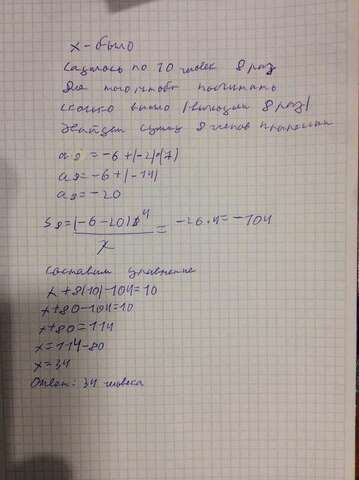 x - было
садилось по 10 человек 8 раз
Для того чтобы посчитать
сколько вышло (выходили 8 раз)
Найдем сумму 8 членов прогрессии
a8 = -6 + (-2)·(7)
a8 = -6 + (-14)
a8 = -20
S8 = (-6-20)8 4 / 2 = -26·4 = -104
Составим уравнение
x + 8(10) - 104 = 10
x + 80 - 104 = 10
x + 80 = 114
x = 114 - 80
x = 34
Ответ: 34 человека